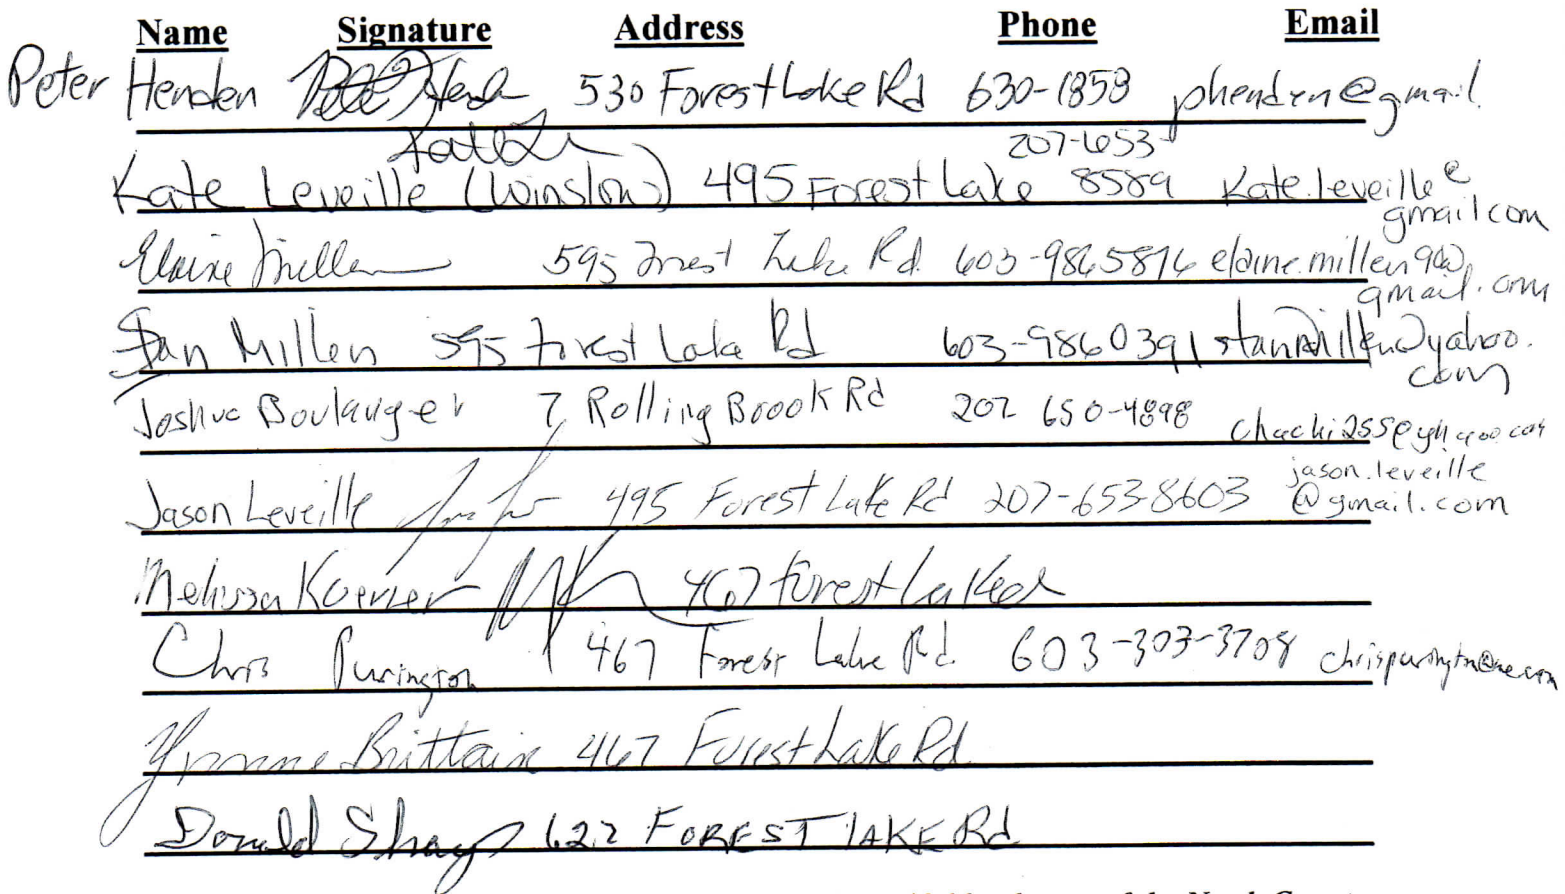 Name Signature Address Phone Email
Peter Henden 530 Forest Lake Rd 630-1858 phenden@gmail.
207-653-
Kate Leveille (Winslow) 495 Forest Lake 8589 Kate.leveille@
gmail.com
Elaine Millen 595 Forest Lake Rd 603-9865816 elaine.millen9@
gmail.com
Stan Millen 595 Forest Lake Rd 603-9860391 stanmillen@yahoo.
com
Joshua Boulanger 7 Rolling Brook Rd 207 650-4898
jason.leveille
Jason Leveille 495 Forest Lake Rd 207-653-8603 @gmail.com
Melissa 467 Forest Lake Rd
Chris Purington 467 Forest Lake Rd. 603-303-3708 chrispurington@me.com
Yvonne Brittain 467 Forest Lake Rd
Donald Shays 622 FOREST LAKE Rd